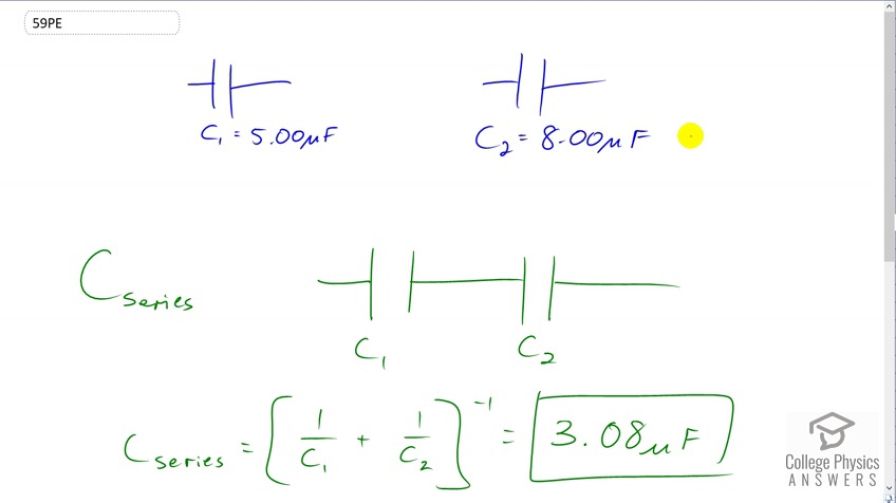 59PE
C₁ = 5.00μF C₂ = 8.00μF
C series
C₁ C₂
C series = [1/C₁ + 1/C₂]⁻¹ = 3.08μF
College Physics
ANSWERS